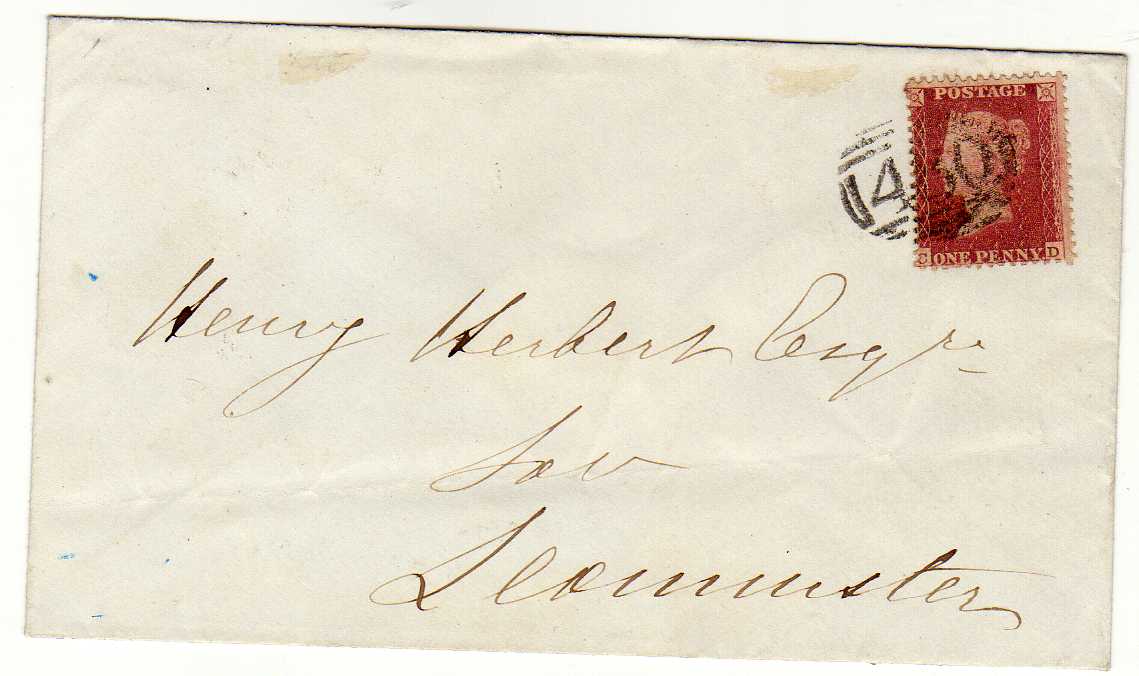 POSTAGE
ONE PENNY
C D
Henry Herbert Esqre
Sol
Leominster